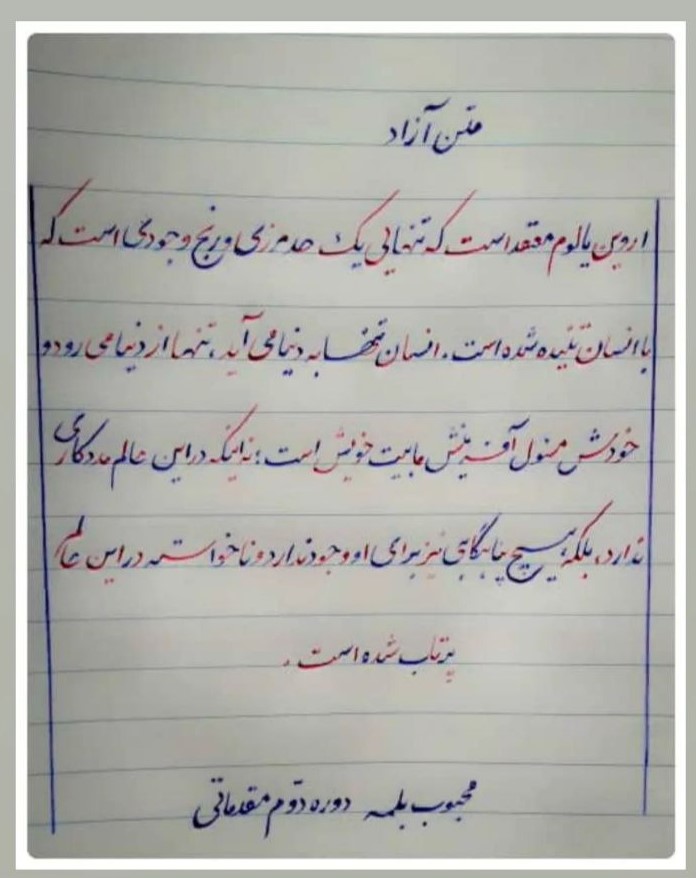 متن آزاد
اروین یالوم معتقد است که تنهایی یک حد مرزی و رنج وجودی است که
با انسان تنیده شده است. انسان تنها به دنیا می آید، تنها از دنیا می رود و
خودش مسئول آفرینش ماهیت خویش است؛ نه اینکه در این عالم مددکاری
ندارد، بلکه هیچ پناهگاهی نیز برای او وجود ندارد و ناخواسته در این عالم
پرتاب شده است.
محبوب بلمه دوره دوم مقدماتی